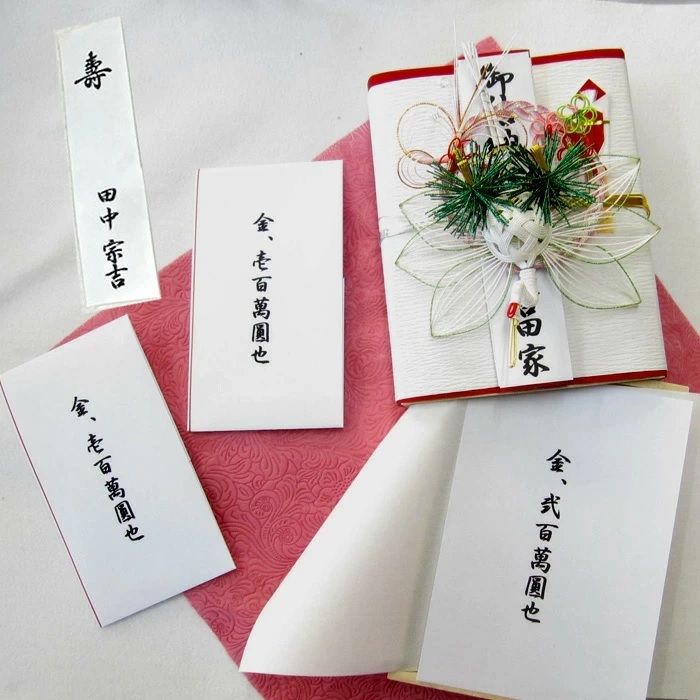 壽
田中宗吉
金、壱百萬圓也
金、壱百萬圓也
金、弐百萬圓也
御
家